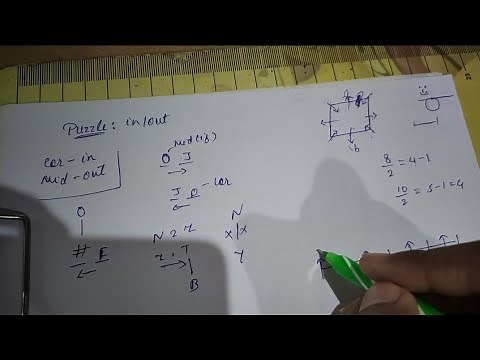 Puzzle: in/out
cor - in
mid - out
O
# E
O mid(is)
J
J O - cor
N 2 r
r . T
B
N
x | x
y
b
8/2 = 4-1
10/2 = 5-1=4